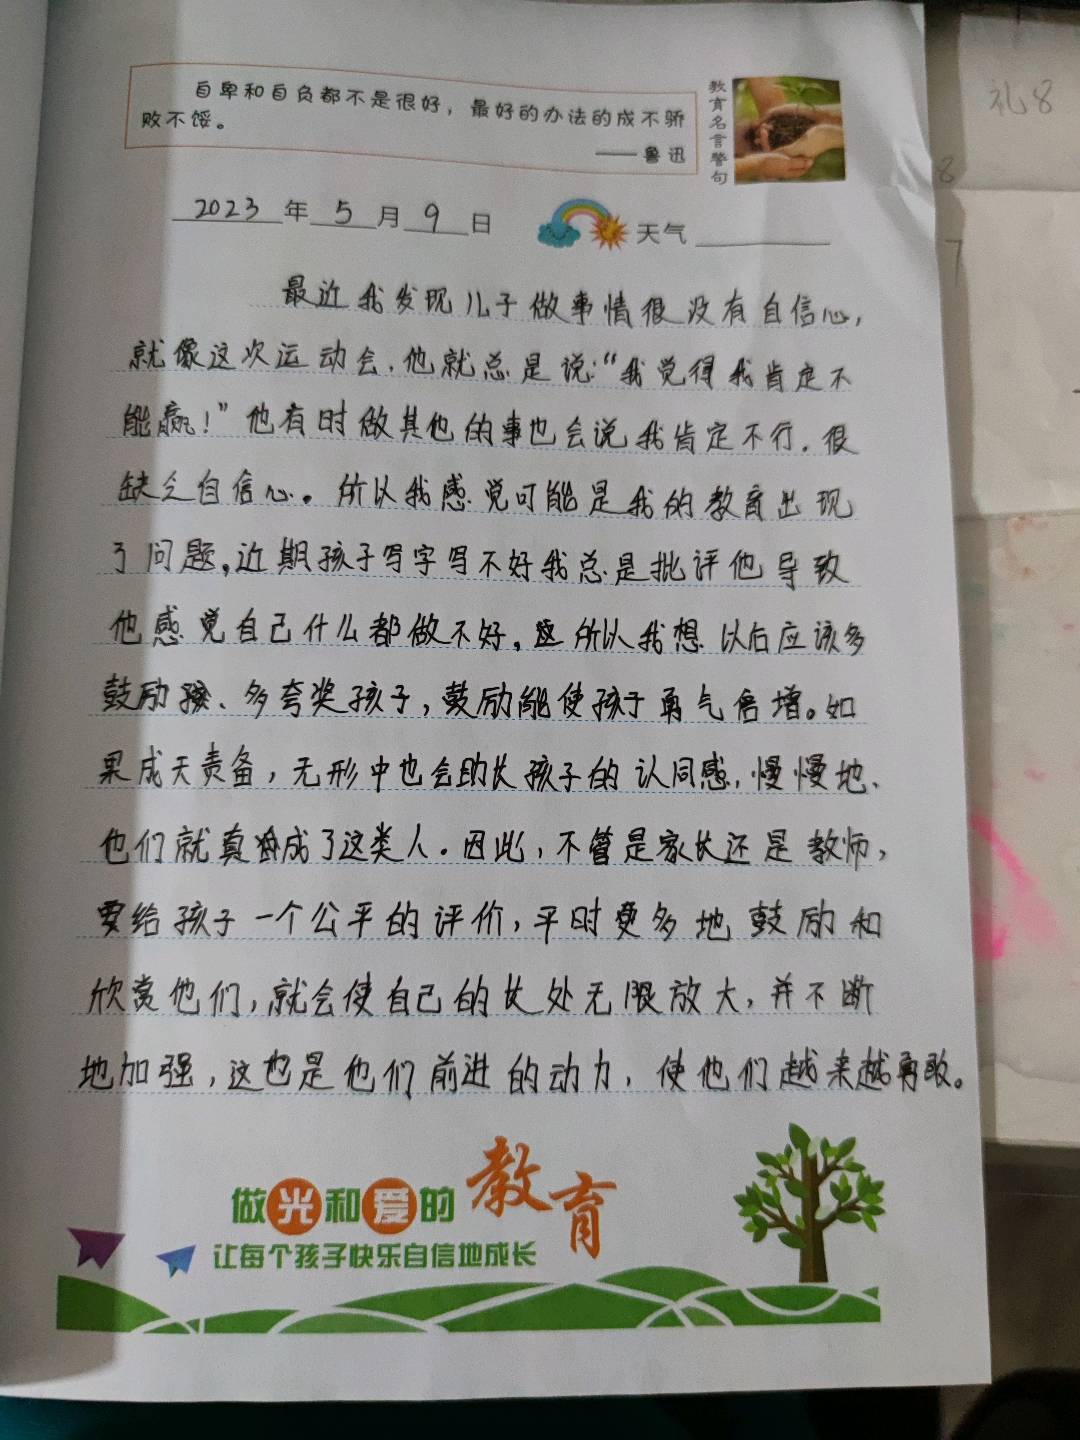 自卑和自负都不是很好，最好的办法的成不骄
败不馁。
——鲁迅
教育名言警句
礼8
8
7
2023年5月9日 天气
最近我发现儿子做事情很没有自信心，
就像这次运动会，他就总是说："我觉得我肯定不
能赢！"他有时做其他的事也会说我肯定不行。很
缺乏自信心。所以我感觉可能是我的教育出现
了问题。近期孩子写字写不好我总是批评他导致
他感觉自己什么都做不好。所以我想以后应该多
鼓励孩、多夸奖孩子，鼓励能使孩子勇气倍增。如
果成天责备，无形中也会助长孩子的认同感，慢慢地、
他们就真成了这类人。因此，不管是家长还是教师，
要给孩子一个公平的评价，平时更多地鼓励和
欣赏他们，就会使自己的长处无限放大，并不断
地加强，这也是他们前进的动力，使他们越来越勇敢。
做光和爱的教育
让每个孩子快乐自信地成长